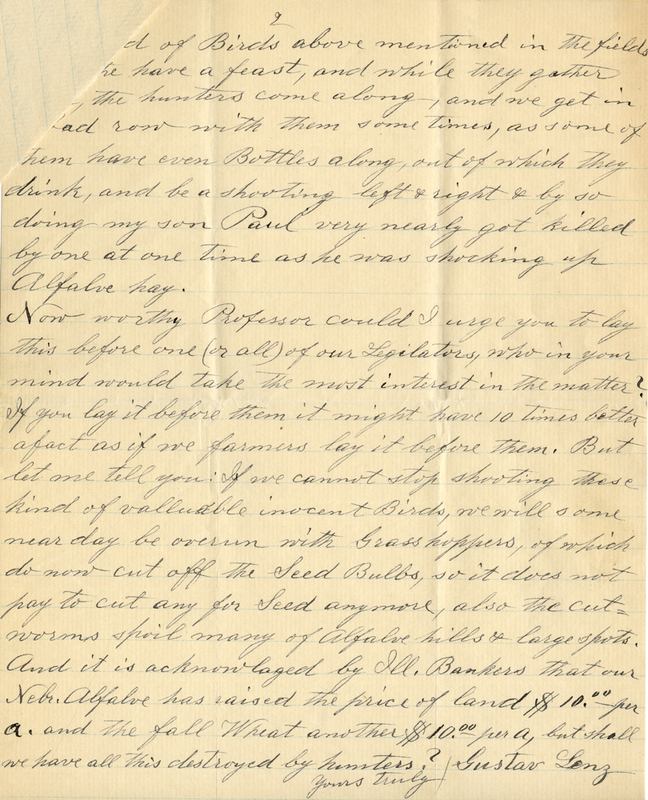 2
d of Birds above mentioned in the fields
he have a feast, and while they gather
, the hunters come along, and we get in
ad row with them some times, as some of
hem have even Bottles along, out of which they
drink, and be a shooting left & right & by so
doing my son Paul very nearly got killed
by one at one time as he was shocking up
Alfalve hay.
Now worthy Professor could I urge you to lay
this before one (or all) of our Legilators, who in your
mind would take the most interest in the matter?
If you lay it before them it might have 10 times better
afact as if we farmers lay it before them. But
let me tell you: If we cannot stop shooting these
kind of valluable inocent Birds, we will some
near day be overun with Grasshoppers, of which
do now cut off the Seed Bulbs, so it does not
pay to cut any for Seed anymore, also the cut=
worms spoil many of Alfalve hills & large spots.
And it is acknowlaged by Ill. Bankers that our
Nebr. Alfalve has raised the price of land $10.00 per
a. and the fall Wheat another $10.00 per a, but shall
we have all this destroyed by hunters? Gustav Lenz
Yours truly